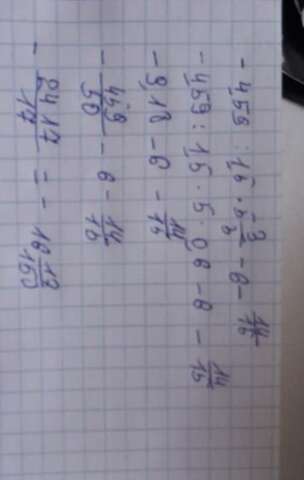 - 4,59 : 15 · - 6 - 14/15
- 4,59 : 15 · 5,06 - 8 - 14/15
- 9,18 - 6 - 14/15
- 459/50 - 6 - 14/15
- 2417/17 = - 16 17/150